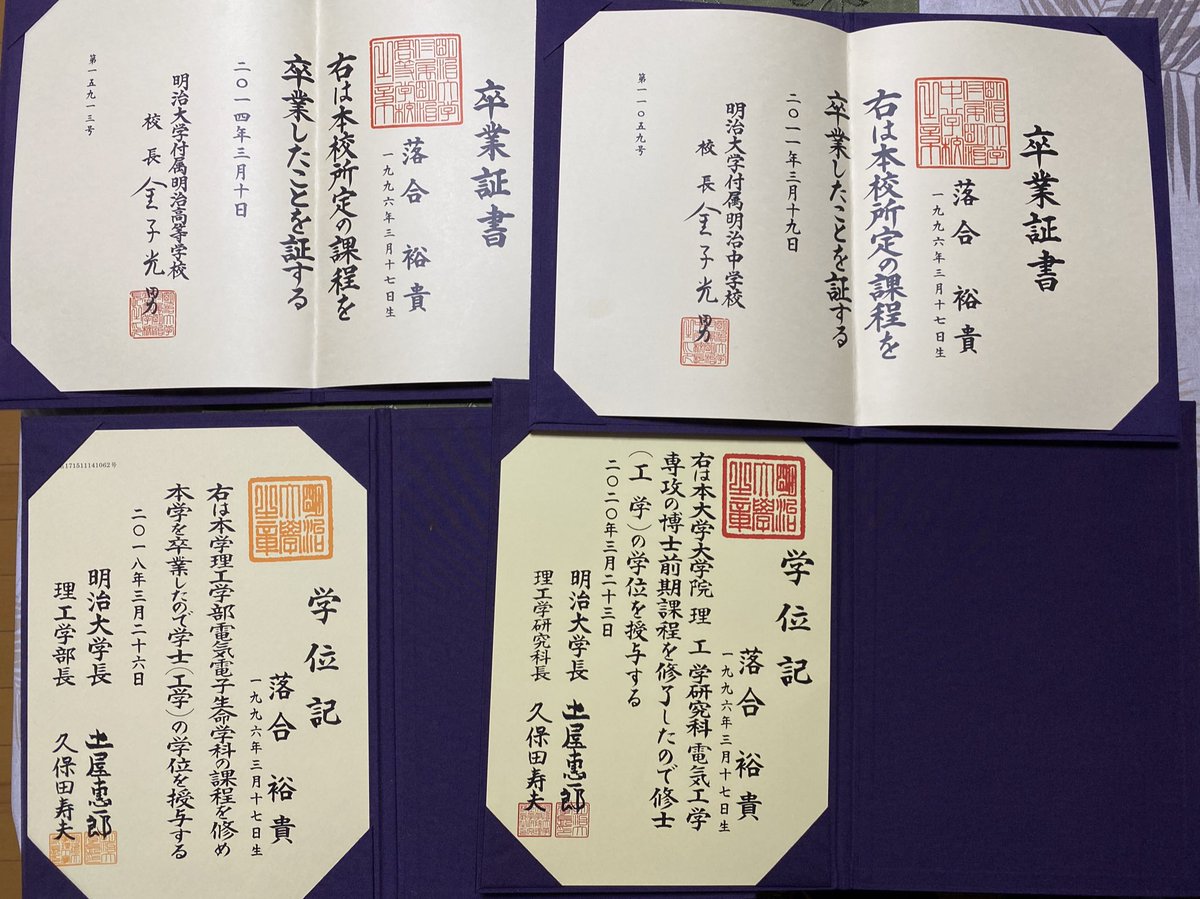 卒業証書
落合 裕貴
一九九六年三月十七日生
右は本校所定の課程を
卒業したことを証する
二〇一四年三月十日
明治大学付属明治高等学校
校長 金子光男
第一五九一三号
卒業証書
落合 裕貴
一九九六年三月十七日生
右は本校所定の課程を
卒業したことを証する
二〇一一年三月十九日
明治大学付属明治中学校
校長 金子光男
第一一〇五九号
学位記
落合 裕貴
一九九六年三月十七日生
右は本学理工学部電気電子生命学科の課程を修め
本学を卒業したので学士(工学)の学位を授与する
二〇一八年三月二十六日
明治大学長 土屋恵一郎
理工学部長 久保田寿夫
171511141062号
明治大學之章
学位記
落合 裕貴
一九九六年三月十七日生
右は本大学大学院 理工学研究科 電気工学
専攻の博士前期課程を修了したので修士
(工学)の学位を授与する
二〇二〇年三月二十三日
明治大学長 土屋恵一郎
理工学研究科長 久保田寿夫
明治大學之章